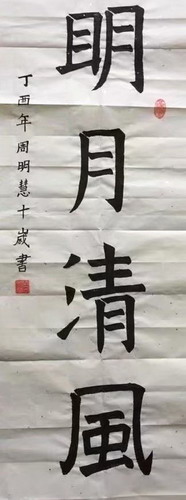 明月清風
丁酉年周明慧十歲書